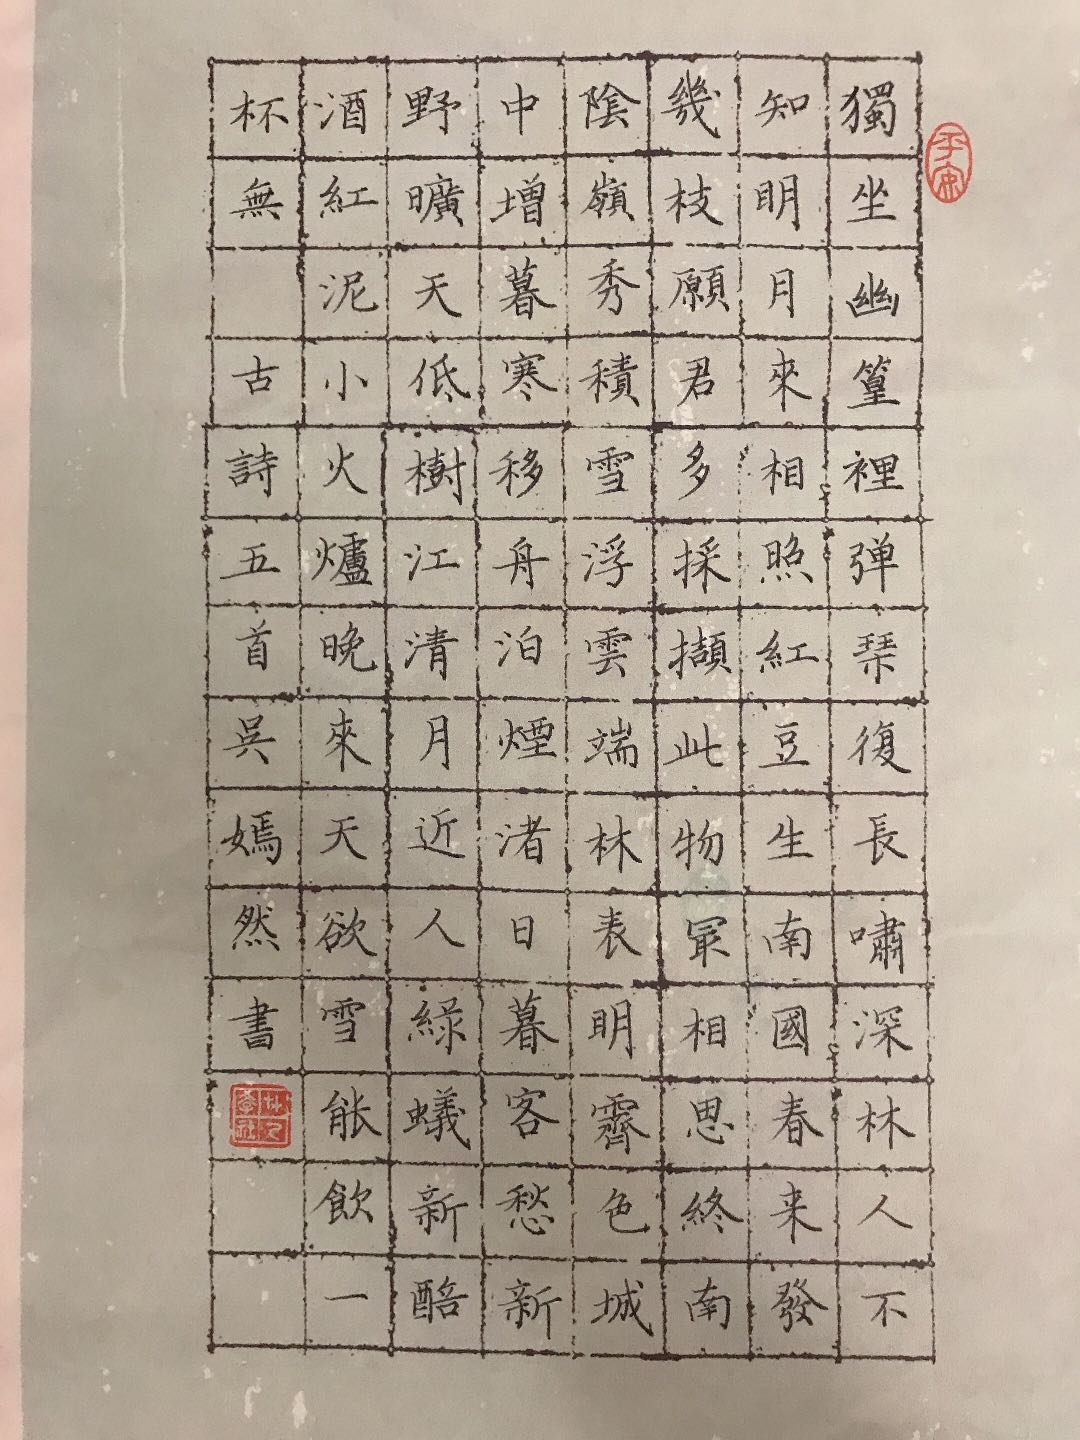 獨坐幽篁裡弹琹復長嘯深林人不
知明月來相照紅豆生南國春来發
幾枝願君多採擷此物冣相思終南
陰嶺秀積雪浮雲端林表明霽色城
中增暮寒移舟泊煙渚日暮客愁新
野曠天低樹江清月近人綠蟻新醅
酒紅泥小火爐晚來天欲雪能飲一
杯無 古詩五首吳嫣然書
平安